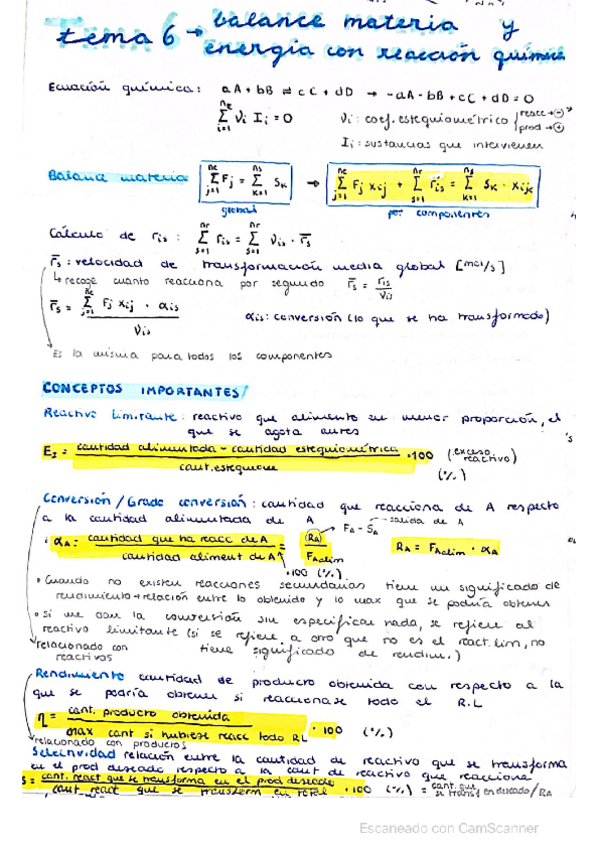 tema 6 → balance materia y
energía con reacción química
Ecuación química: aA + bB ⇌ cC + dD → -aA - bB + cC + dD = 0
Σ νi Ii = 0 νi: coef. estequiométrico {reac → ⊖ prod → ⊕
Ii: sustancias que intervienen
Balance materia Σ Fj = Σ Sk → Σ Fj xij + Σ r̄is = Σ Sk · xik
global por componentes
Cálculo de ris: Σ ris = Σ νis · r̄s
r̄s: velocidad de transformación media global [mol/s]
↳ recoge cuanto reacciona por segundo r̄s = ris/νis
r̄s = Σ Fj xij · αis / νis αis: conversión (lo que se ha transformado)
→ Es la misma para todos los componentes
CONCEPTOS IMPORTANTES/
Reactivo Limitante: reactivo que alimento en menor proporción, el
que se agota antes
Es = cantidad alimentada - cantidad estequiométrica / cant. estequiom · 100 (exceso reactivo)
(%)
Conversión / Grado conversión: cantidad que reacciona de A respecto
a la cantidad alimentada de A
αA = cantidad que ha reacc de A / cantidad aliment de A = RA / FAalim → FA - SA → salida de A RA = FAalim · αA
· 100 (%)
• Cuando no existen reacciones secundarias tiene un significado de
rendimiento → relación entre lo obtenido y lo max que se podría obtener
• Si me dan la conversión sin especificar nada, se refiere al
reactivo limitante (si se refiere a otro que no es el react. lim, no
tiene significado de rendim.)
relacionado con reactivos
Rendimiento cantidad de producto obtenida con respecto a la
que se podría obtener si reaccionase todo el R.L
η = cant. producto obtenida / max cant si hubiese reacc todo RL · 100 (%)
relacionado con productos
Selectividad relación entre la cantidad de reactivo que se transforma
en el prod deseado respecto a la cant de reactivo que reacciona
S = cant. react que se transforma en el prod deseado / cant react que se transform en total · 100 (%) = cant. que se transf en deseado / RA
Escaneado con CamScanner